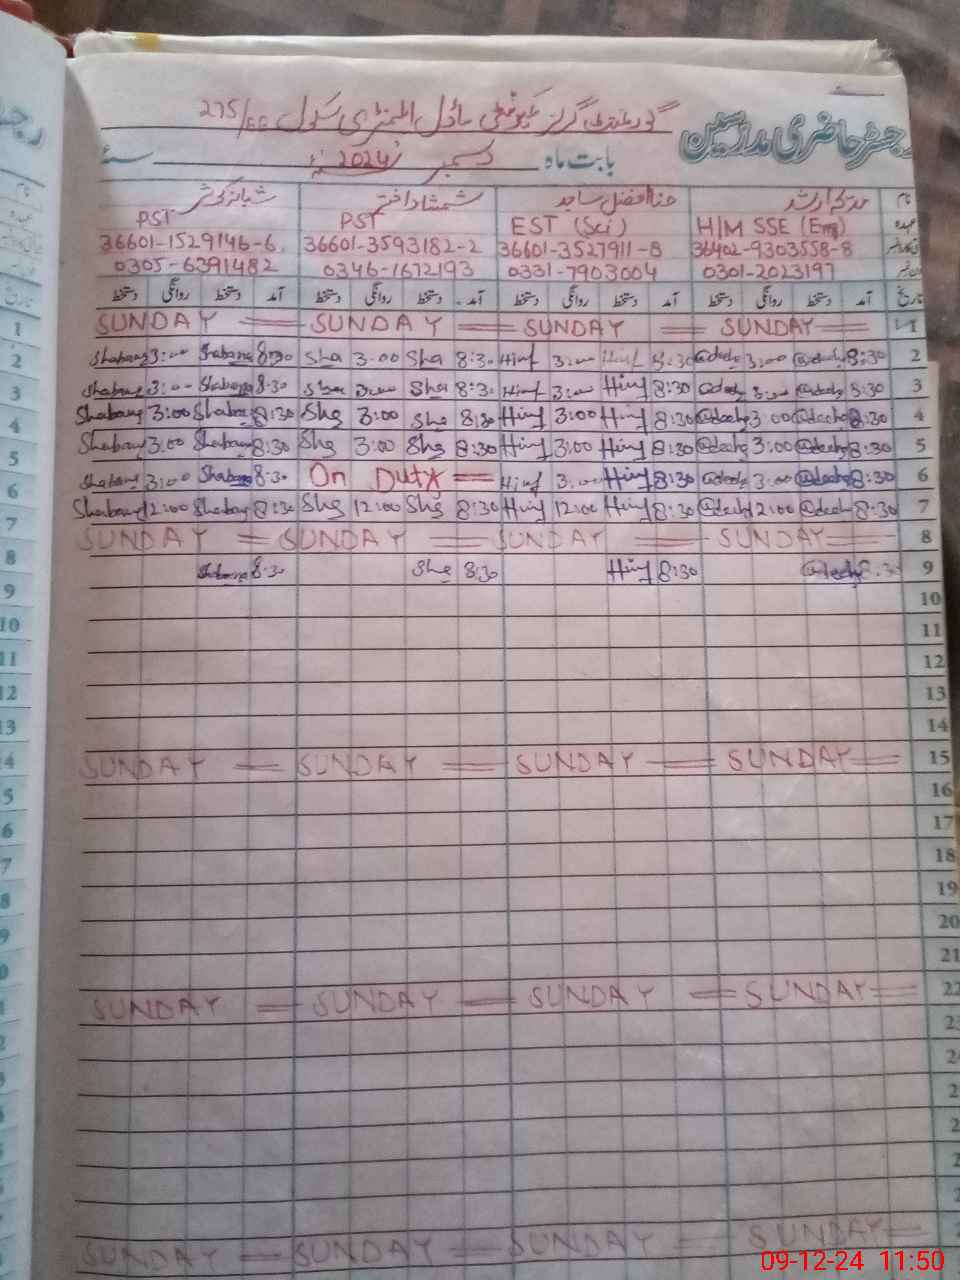 رجسٹر حاضری مدرسین
گورنمنٹ گرلز کمیونٹی ماڈل ایلیمنٹری سکول 275/EB
بابت ماہ دسمبر 2024ء سنہ
نام مدیحہ ارشد حنا افضل ساجد شمشاد اختر شبانہ کوثر
عہدہ H/M SSE (Eng) EST (Sci) PST PST
36402-9303558-8 36601-3527911-8 36601-3593182-2 36601-1529146-6
0301-2023197 0331-7903004 0346-1672193 0305-6391482
تاریخ آمد دستخط روانگی دستخط آمد دستخط روانگی دستخط آمد دستخط روانگی دستخط آمد دستخط روانگی دستخط
SUNDAY SUNDAY SUNDAY SUNDAY 1
Shabana 3:00 Shabana 8:30 Sha 3:00 Sha 8:30 3:00 8:30 3:00 8:30 2
Shabana 3:00 Shabana 8:30 Sha 3:00 Sha 8:30 3:00 8:30 3:00 8:30 3
Shabana 3:00 Shabana 8:30 Sha 3:00 Sha 8:30 3:00 8:30 3:00 8:30 4
Shabana 3:00 Shabana 8:30 Sha 3:00 Sha 8:30 3:00 8:30 3:00 8:30 5
Shabana 3:00 Shabana 8:30 On Duty 3:00 8:30 3:00 8:30 6
Shabana 12:00 Shabana 8:30 Sha 12:00 Sha 8:30 12:00 8:30 12:00 8:30 7
SUNDAY SUNDAY SUNDAY SUNDAY 8
Shabana 8:30 Sha 8:30 8:30 8:30 9
10
11
12
13
14
SUNDAY SUNDAY SUNDAY SUNDAY 15
16
17
18
19
20
21
SUNDAY SUNDAY SUNDAY SUNDAY 22
23
SUNDAY SUNDAY SUNDAY SUNDAY
09-12-24 11:50